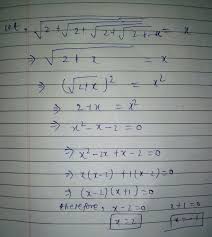 Let, √2+√2+√2+√2+...x = x
⇒ √2+x = x
⇒ (√2+x)² = x²
⇒ 2+x = x²
⇒ x²-x-2=0
⇒ x²-2x+x-2=0
⇒ x(x-2) +1(x-2)=0
⇒ (x-2)(x+1)=0
therefore, x-2=0 x+1=0
x=2 x=-1